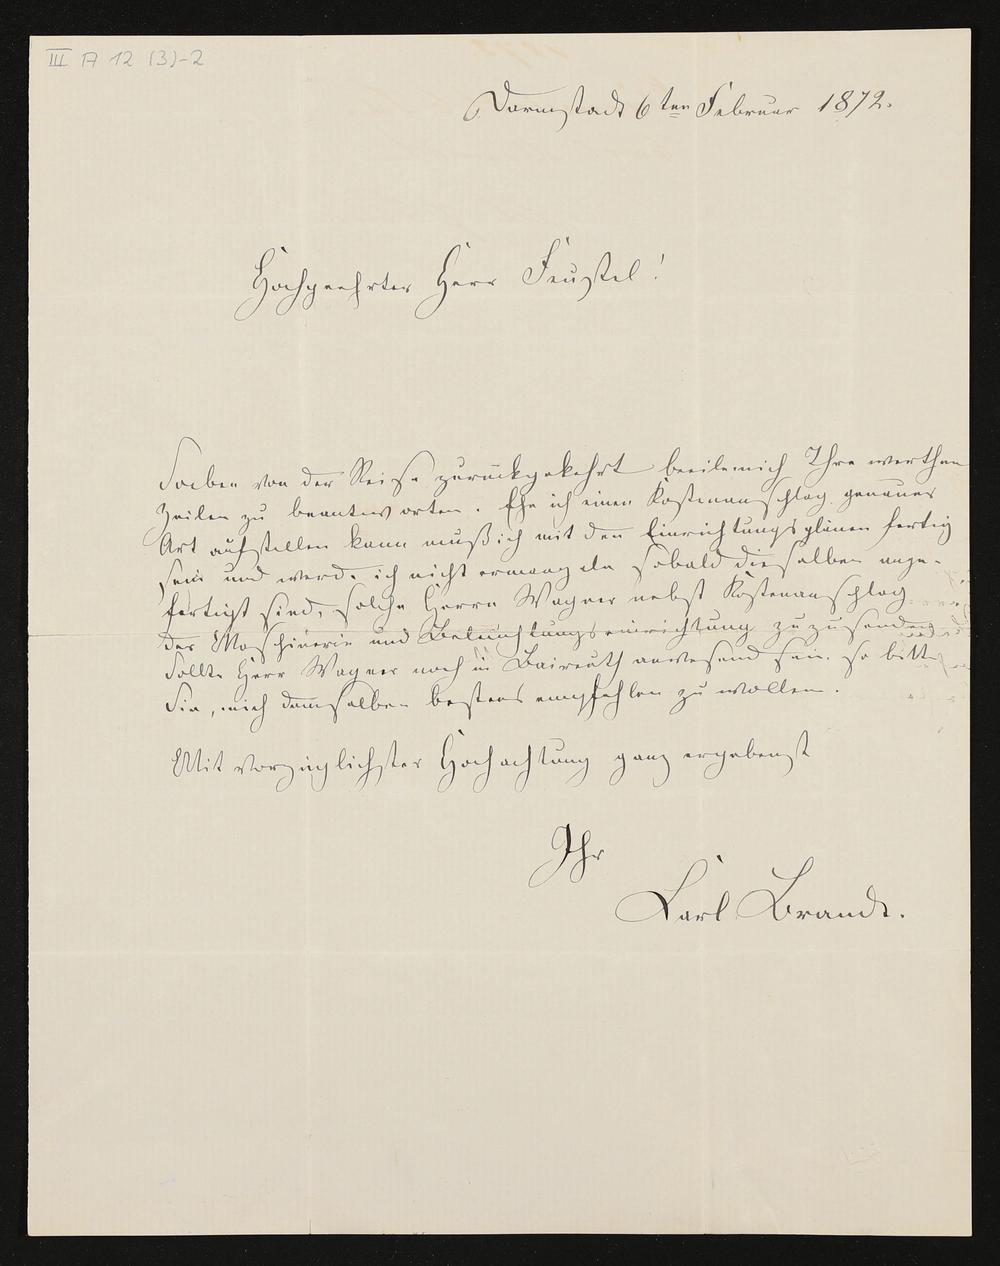 III A 12 (3)-2
Darmstadt 6ten Februar 1872.
Hochgeehrter Herr Feustel!
Soeben von der Reise zurückgekehrt beeile mich Ihre werthen
Zeilen zu beantworten. Ehe ich einen Kostenanschlag genauer
Art aufstellen kann muß ich mit den Einrichtungsplänen fertig
sein und werde ich nicht ermangeln sobald dieselben ange-
fertigt sind, solche Herrn Wagner nebst Kostenanschlag
der Maschinerie und Beleuchtungseinrichtung zuzusenden
Sollte Herr Wagner noch in Baireuth anwesend sein, so bitte
Sie, mich demselben bestens empfehlen zu wollen.
Mit vorzüglichster Hochachtung ganz ergebenst
Ihr
Carl Brandt.